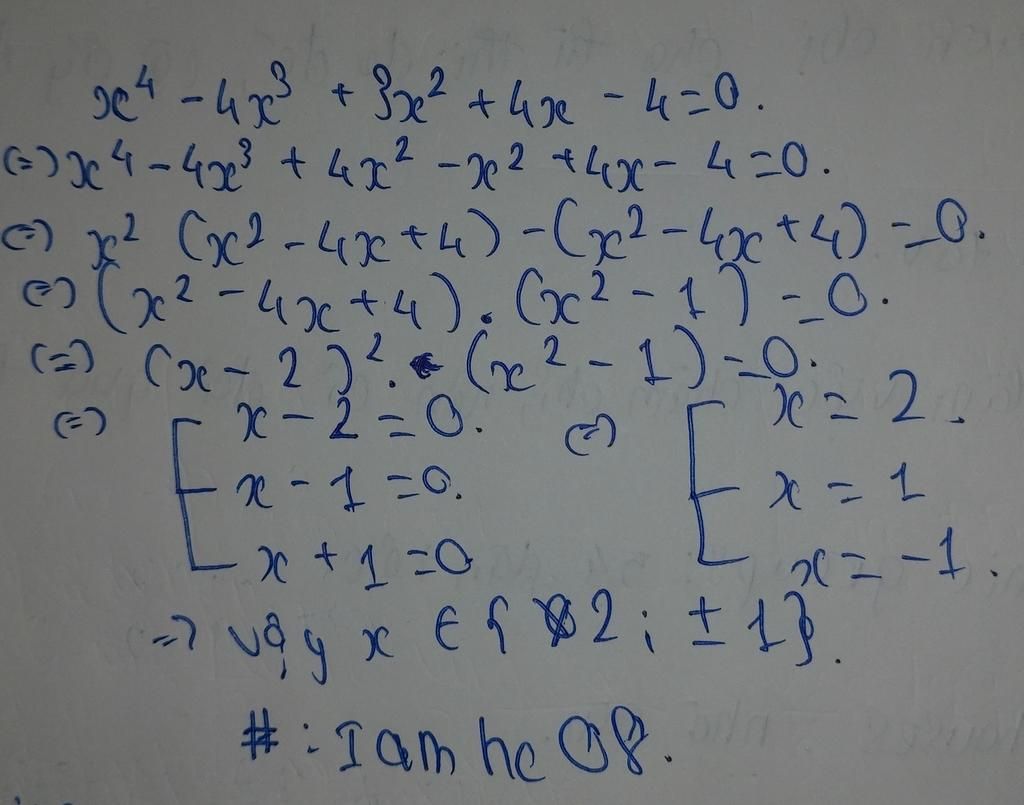 x⁴ - 4x³ + 3x² + 4x - 4 = 0.
(=) x⁴ - 4x³ + 4x² - x² + 4x - 4 = 0.
(=) x² (x² - 4x + 4) - (x² - 4x + 4) = 0.
(=) (x² - 4x + 4) . (x² - 1) = 0.
(=) (x - 2)² . (x² - 1) = 0.
(=) [ x - 2 = 0. (=) [ x = 2.
x - 1 = 0. x = 1
x + 1 = 0 x = -1.
=) vậy x ∈ { 2 ; ± 1}.
# : I am hc 08.